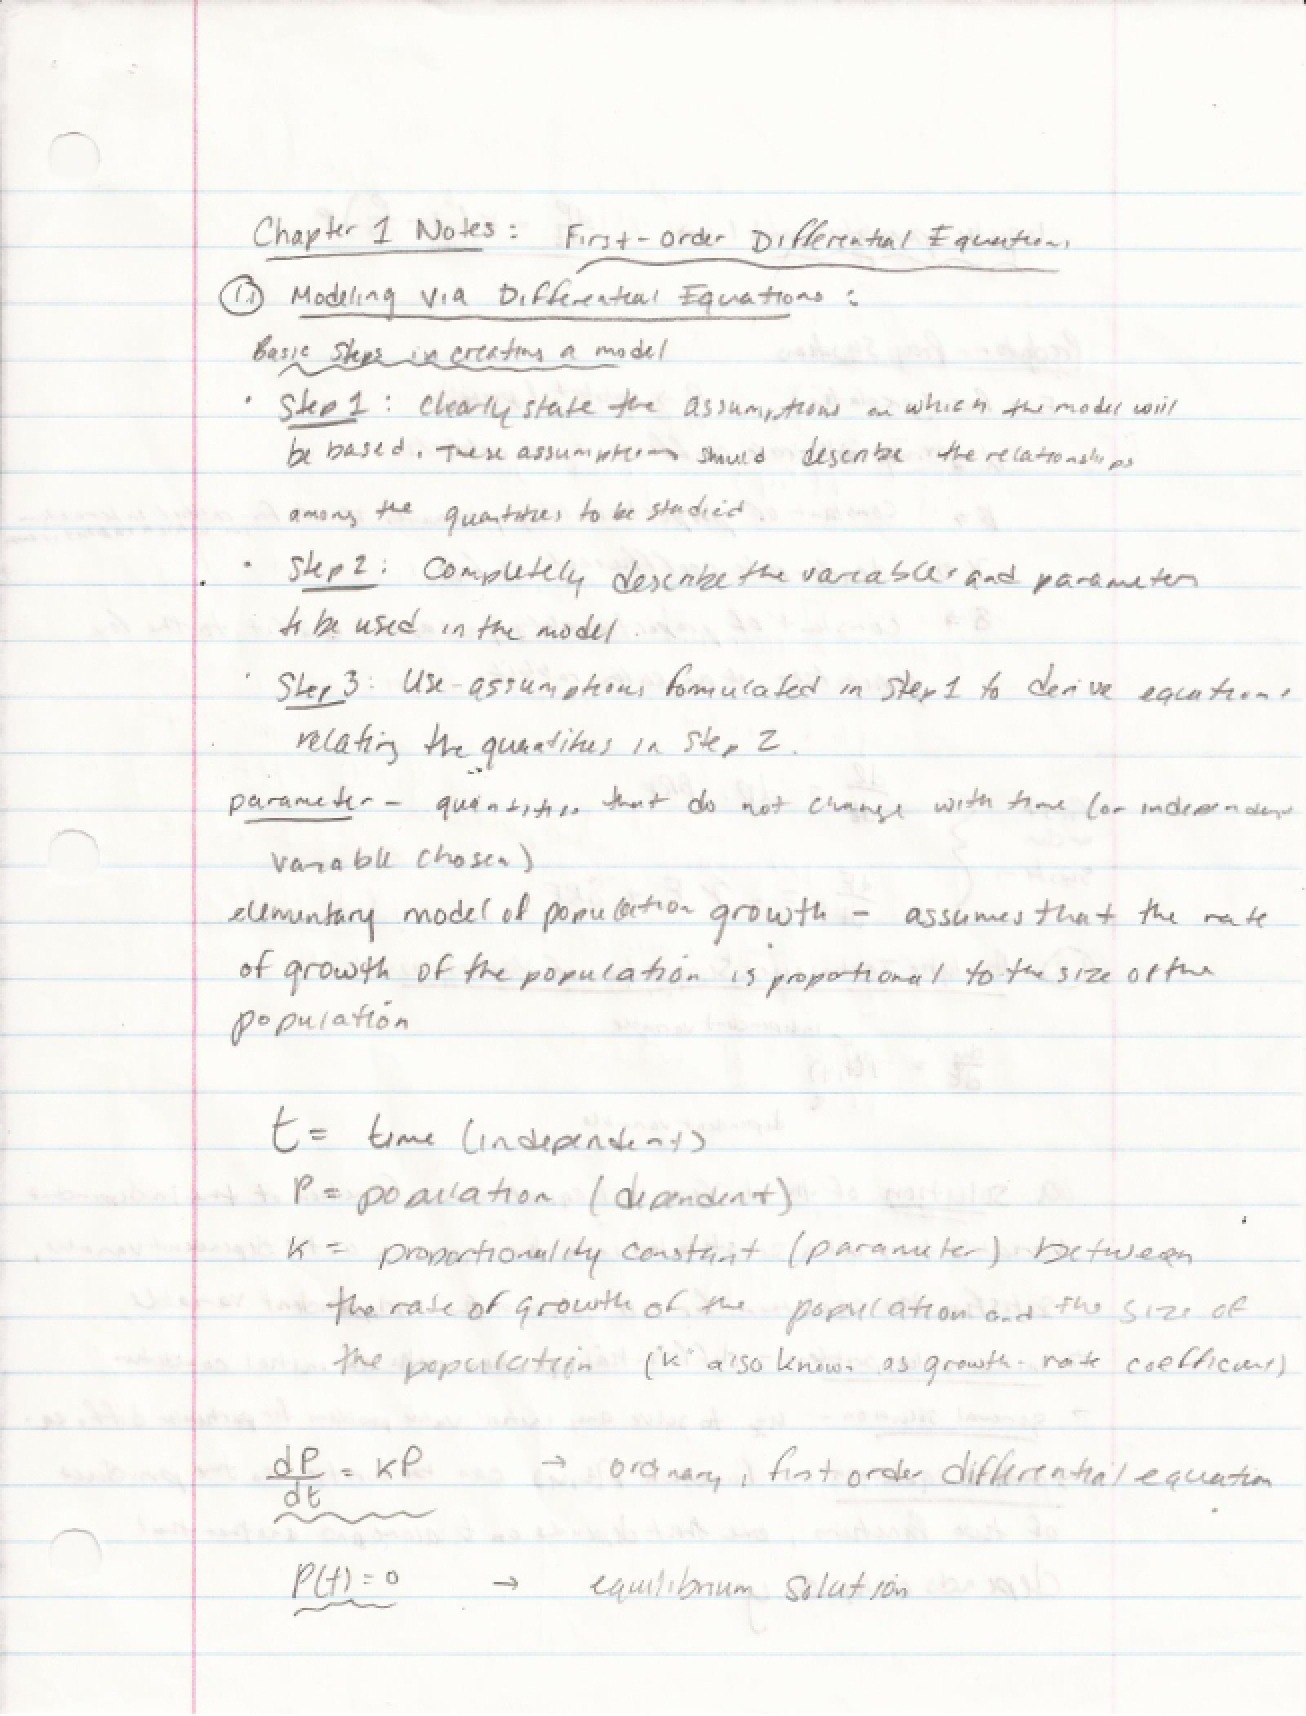 Chapter 1 Notes: First-Order Differential Equations
1.1 Modeling via Differential Equations:
Basic Steps in creating a model
· Step 1: clearly state the assumptions on which the model will
be based. These assumptions should describe the relationships
among the quantities to be studied.
· Step 2: Completely describe the variables and parameters
to be used in the model.
· Step 3: Use assumptions formulated in Step 1 to derive equations
relating the quantities in Step 2.
parameter - quantities that do not change with time (or independent
variable chosen)
elementary model of population growth - assumes that the rate
of growth of the population is proportional to the size of the
population
t = time (independent)
P = population (dependent)
K = proportionality constant (parameter) between
the rate of growth of the population and the size of
the population ("K" also known as growth-rate coefficient)
dP/dt = KP → ordinary, first order differential equation
P(t) = 0 → equilibrium solution